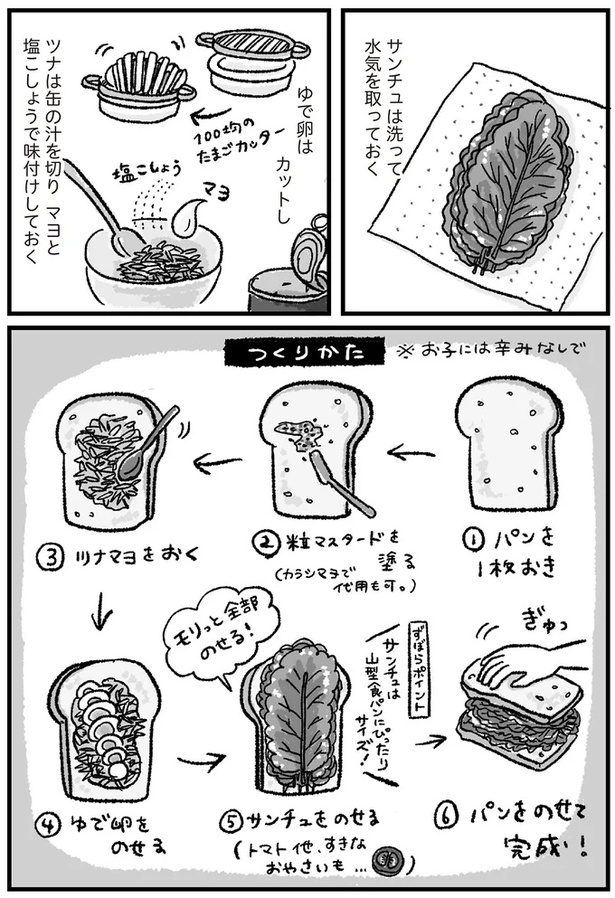 サンチュは洗って
水気を取っておく
ゆで卵は
カットし
100均の
たまごカッター
ツナは缶の汁を切り マヨと
塩こしょうで味付けしておく
塩こしょう
マヨ
つくりかた
※お子には辛みなしで
① パンを
1枚おき
② 粒マスタードを
塗る
(カラシマヨで
代用も可。)
③ ツナマヨをおく
④ ゆで卵を
のせる
モリっと全部
のせる!
⑤ サンチュをのせる
(トマト他、すきな
おやさいも…)
ずぼらポイント
サンチュは
山型食パンにぴったり
サイズ!
ぎゅっ
⑥ パンをのせて
完成!